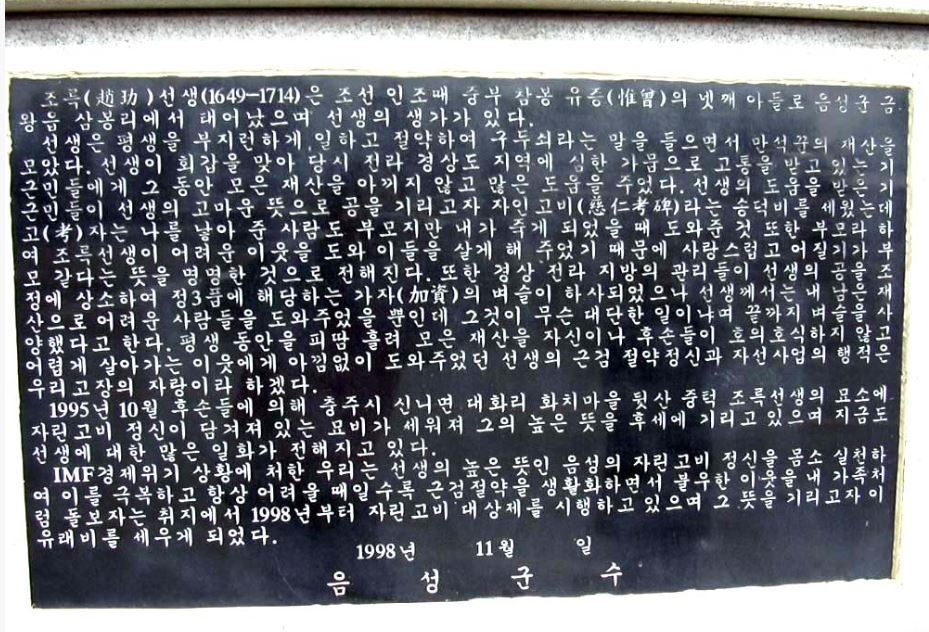 조륵(趙玏)선생(1649-1714)은 조선 인조때 중부 참봉 유증(惟曾)의 넷째 아들로 음성군 금
왕읍 삼봉리에서 태어났으며 선생의 생가가 있다.
선생은 평생을 부지런하게 일하고 절약하여 구두쇠라는 말을 들으면서 만석꾼의 재산을
모았다. 선생이 회갑을 맞아 당시 전라 경상도 지역에 심한 가뭄으로 고통을 받고 있는 기
근민들에게 그 동안 모은 재산을 아끼지 않고 많은 도움을 주었다. 선생의 도움을 받은 기
근민들이 선생의 고마운 뜻으로 공을 기리고자 자인고비(慈仁考碑)라는 송덕비를 세웠는데
고(考)자는 나를 낳아 준 사람도 부모지만 내가 죽게 되었을 때 도와준 것 또한 부모라 하
여 조륵선생이 어려운 이웃을 도와 이들을 살게 해 주었기 때문에 사랑스럽고 어질기가 부
모 같다는 뜻을 명명한 것으로 전해진다. 또한 경상 전라 지방의 관리들이 선생의 공을 조
정에 상소하여 정3품에 해당하는 가자(加資)의 벼슬이 하사되었으나 선생께서는 내 남은 재
산으로 어려운 사람들을 도와주었을 뿐인데 그것이 무슨 대단한 일이냐며 끝까지 벼슬을 사
양했다고 한다. 평생 동안을 피땀 흘려 모은 재산을 자신이나 후손들이 호의호식하지 않고
어렵게 살아가는 이웃에게 아낌없이 도와주었던 선생의 근검 절약정신과 자선사업의 행적은
우리고장의 자랑이라 하겠다.
1995년 10월 후손들에 의해 충주시 신니면 대화리 화치마을 뒷산 중턱 조륵선생의 묘소에
자린고비 정신이 담겨져 있는 묘비가 세워져 그의 높은 뜻을 후세에 기리고 있으며 지금도
선생에 대한 많은 일화가 전해지고 있다.
IMF경제위기 상황에 처한 우리는 선생의 높은 뜻인 음성의 자린고비 정신을 몸소 실천하
여 이를 극복하고 항상 어려울 때일수록 근검절약을 생활화하면서 불우한 이웃을 내 가족처
럼 돌보자는 취지에서 1998년부터 자린고비 대상제를 시행하고 있으며 그 뜻을 기리고자 이
유래비를 세우게 되었다.
1998년 11월 일
음성군수